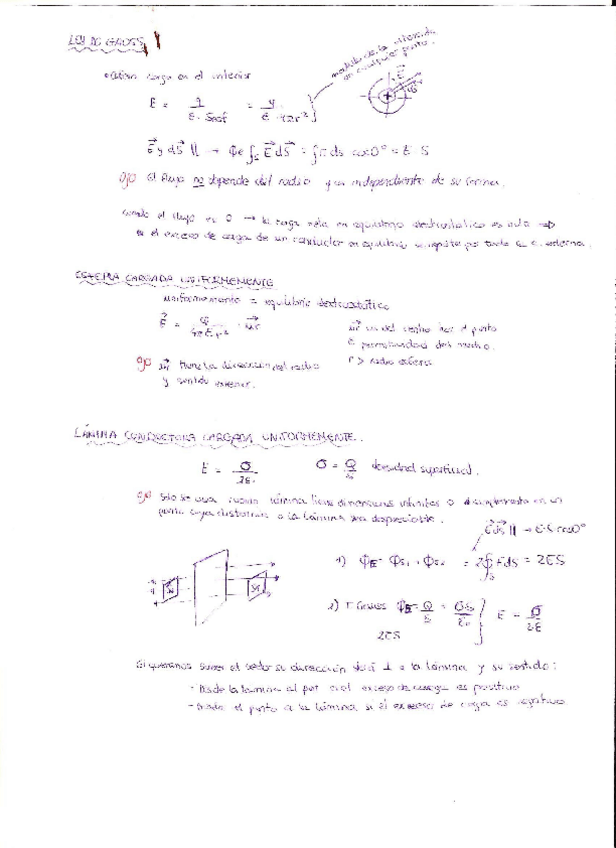 LEY DE GAUSS
módulo de la intensidad
en cualquier punto.
carga en el interior
E = q / ε · Ssup = q / ε · 4πr²
E y dS || → Φe ∫s E dS = ∫ E ds cos 0° = E · S
Ojo El flujo no depende del radio y es independiente de su forma.
cuando el flujo es 0 → la carga neta en equilibrio electrostático es nula →
en el exceso de carga de un conductor en equilibrio se reparte por toda su c. externa.
ESFERA CARGADA UNIFORMEMENTE
uniformemente = equilibrio electrostático
E = Q / 4πε r² · ur
ur va del centro hac el punto
ε permitividad del medio.
r > radio esfera
Ojo ur tiene la dirección del radio
y sentido exterior.
LÁMINA CONDUCTORA CARGADA UNIFORMEMENTE.
E = σ / 2ε. σ = Q / S densidad superficial.
Ojo Solo se usa cuando lámina tiene dimensiones infinitas o en un
punto cuya distancia a la lámina sea despreciable.
E dS || → E·S cos 0°
1) ΦE = Φs1 + Φs2 = 2∮ E dS = 2ES
2) T Gauss ΦE = Q / = σS / ε } E = σ / 2ε
2ES
Si queremos saber el vector su dirección será ⊥ a la lámina y su sentido:
- Desde la lámina al pto si el exceso de carga es positivo
- Desde el punto a la lámina si el exceso de carga es negativo